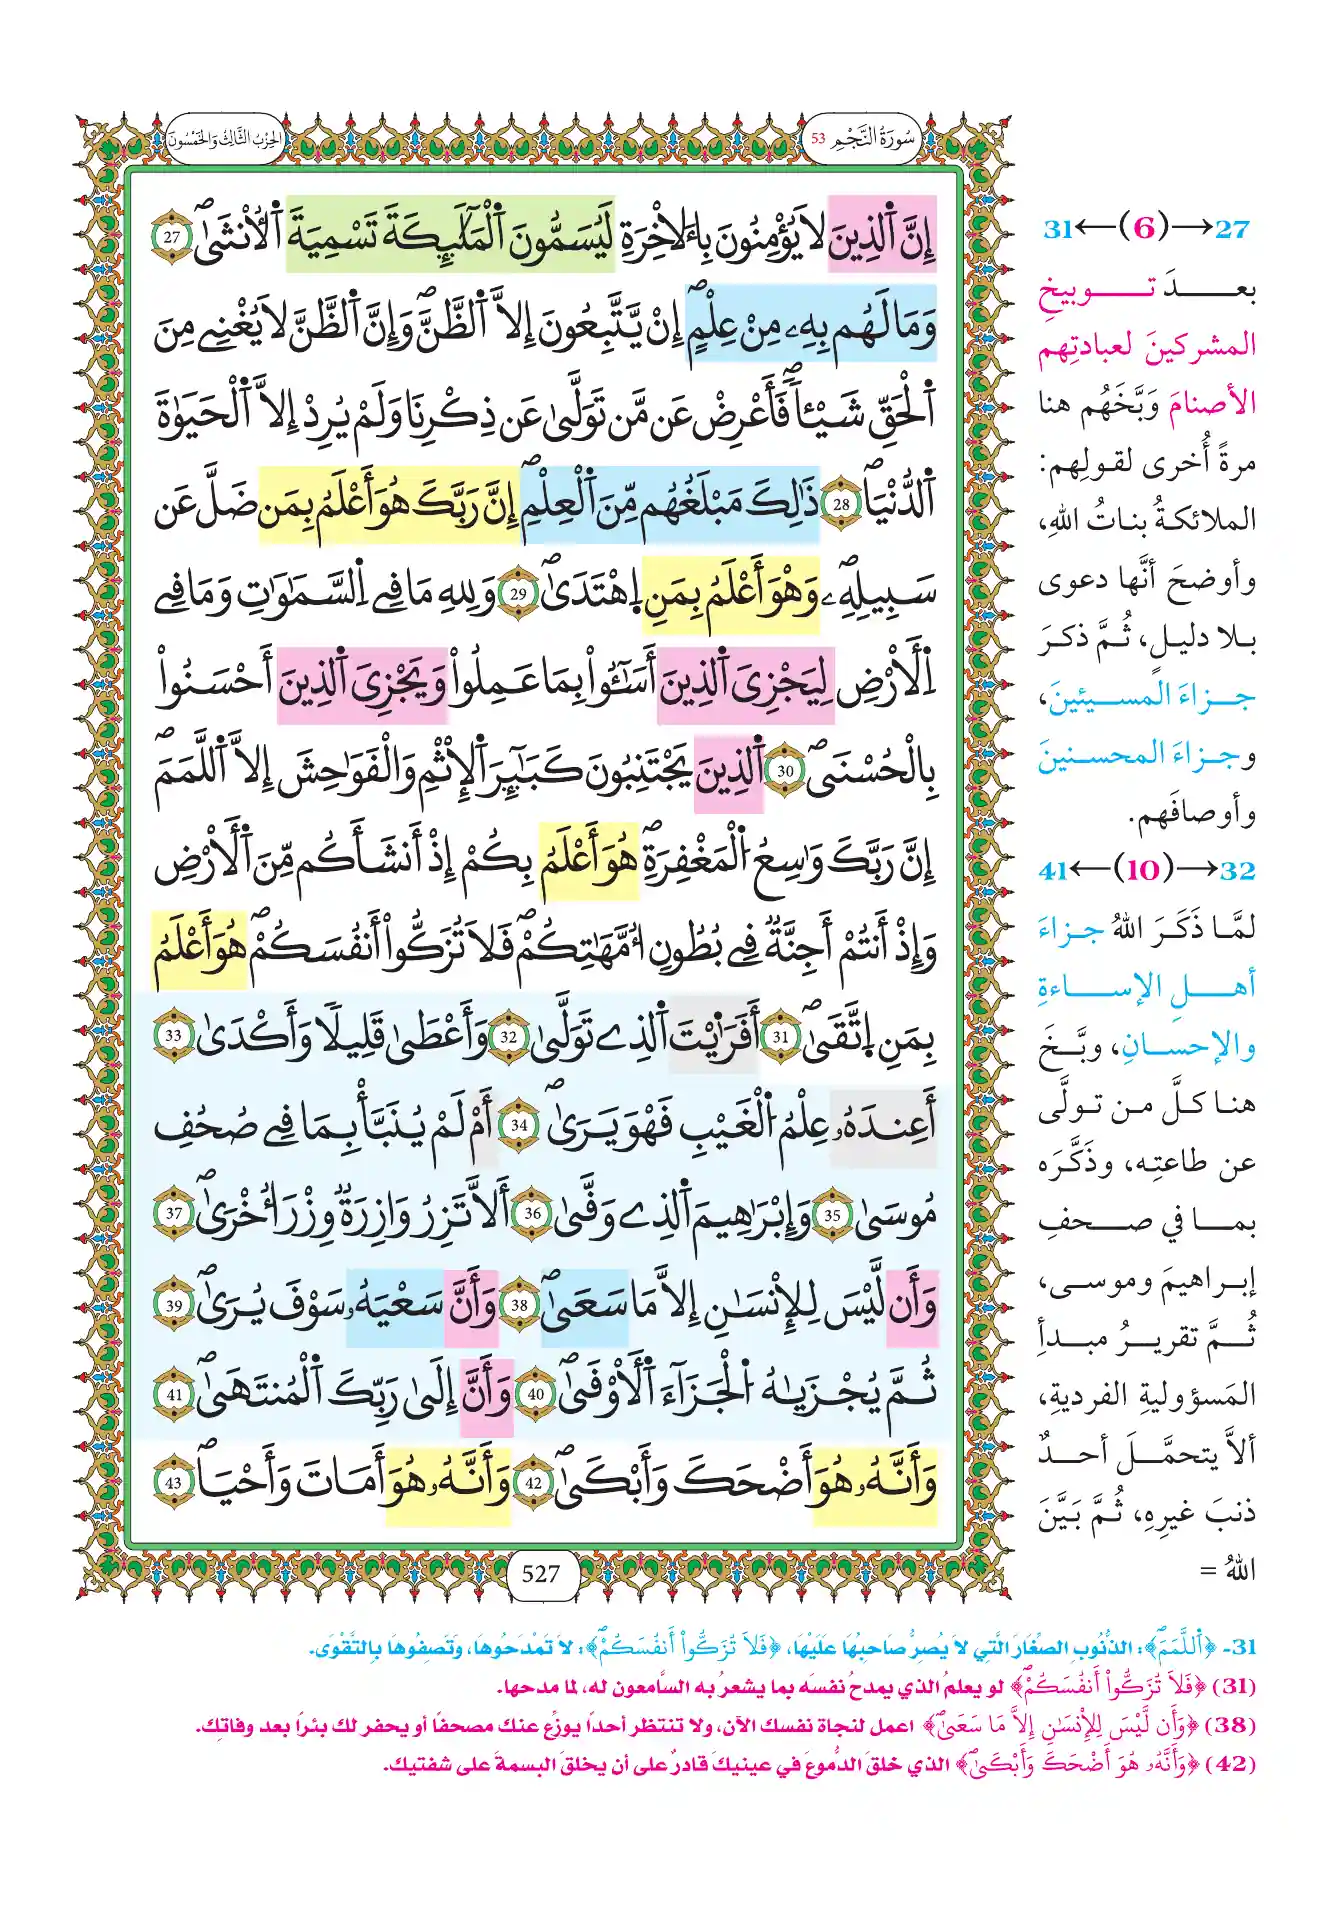 سُورَةُ النَّجْمِ 53
الحِزْبُ الثَّالِثُ وَالخَمْسُونَ
إِنَّ اَ۬لذِينَ لَا يُؤْمِنُونَ بِالَاخِرَةِ لَيُسَمُّونَ اَ۬لْمَلَٰٓئِكَةَ تَسْمِيَةَ اَ۬لُانْث۪ىٰۖ 27
وَمَا لَهُم بِهِۦ مِنْ عِلْمٍۖ إِنْ يَّتَّبِعُونَ إِلَّا اَ۬لظَّنَّۖ وَإِنَّ اَ۬لظَّنَّ لَا يُغْنِے مِنَ
اَ۬لْحَقِّ شَيْـٔاٗۖ فَأَعْرِضْ عَن مَّن تَوَلَّىٰ عَن ذِكْرِنَا وَلَمْ يُرِدْ إِلَّا اَ۬لْحَيَوٰةَ
اَ۬لدُّنْيَاۖ 28 ذَٰلِكَ مَبْلَغُهُم مِّنَ اَ۬لْعِلْمِۖ إِنَّ رَبَّكَ هُوَ أَعْلَمُ بِمَن ضَلَّ عَن
سَبِيلِهِۦۖ وَهْوَ أَعْلَمُ بِمَنِ اِ۪هْتَد۪ىٰۖ 29 وَلِلهِ مَا فِے اِ۬لسَّمَٰوَٰتِ وَمَا فِے
اِ۬لَارْضِ لِيَجْزِيَ اَ۬لذِينَ أَسَٰٓـُٔواْ بِمَا عَمِلُواْ وَيَجْزِيَ اَ۬لذِينَ أَحْسَنُواْ
بِالْحُسْنَىۖ 30 اَ۬لذِينَ يَجْتَنِبُونَ كَبَٰٓئِرَ اَ۬لِاثْمِ وَالْفَوَٰحِشَ إِلَّا اَ۬للَّمَمَ
إِنَّ رَبَّكَ وَٰسِعُ اُ۬لْمَغْفِرَةِۖ هُوَ أَعْلَمُ بِكُمْ إِذْ أَنشَأَكُم مِّنَ اَ۬لَارْضِ
وَإِذْ أَنتُمْ أَجِنَّةٞ فِے بُطُونِ أُمَّهَٰتِكُمْۖ فَلَا تُزَكُّواْ أَنفُسَكُمْۖ هُوَ أَعْلَمُ
بِمَنِ اِ۪تَّق۪ىٰۖ 31 أَفَرَٰٓيْتَ اَ۬لذِے تَوَلَّىٰ 32 وَأَعْطَىٰ قَلِيلاٗ وَأَكْد۪ىٰ 33
أَعِندَهُۥ عِلْمُ اُ۬لْغَيْبِ فَهْوَ يَر۪ىٰۖ 34 أَمْ لَمْ يُنَبَّأْ بِمَا فِے صُحُفِ
مُوسَىٰ 35 وَإِبْرَٰهِيمَ اَ۬لذِے وَفَّىٰ 36 أَلَّا تَزِرُ وَازِرَةٞ وِزْرَ أُخْر۪ىٰۖ 37
وَأَن لَّيْسَ لِلِانسَٰنِ إِلَّا مَا سَع۪ىٰۖ 38 وَأَنَّ سَعْيَهُۥ سَوْفَ يُر۪ىٰۖ 39
ثُمَّ يُجْزَيٰهُ اُ۬لْجَزَآءَ اَ۬لَاوْف۪ىٰۖ 40 وَأَنَّ إِلَىٰ رَبِّكَ اَ۬لْمُنتَه۪ىٰۖ 41
وَأَنَّهُۥ هُوَ أَضْحَكَ وَأَبْك۪ىٰۖ 42 وَأَنَّهُۥ هُوَ أَمَاتَ وَأَحْي۪اۖ 43
527
27→(6)←31
بعدَ توبيخِ
المشركينَ لعبادتِهم
الأصنامَ وَبَّخَهُم هنا
مرةً أُخرى لقولِهم:
الملائكةُ بناتُ اللهِ،
وأوضحَ أنَّها دعوى
بلا دليلٍ، ثُمَّ ذكرَ
جزاءَ المسيئينَ،
وجزاءَ المحسنينَ
وأوصافَهم.
32→(10)←41
لمَّا ذَكَرَ اللهُ جزاءَ
أهلِ الإساءةِ
والإحسانِ، وبَّخَ
هنا كلَّ من تولَّى
عن طاعتِه، وذَكَّرَه
بما في صحفِ
إبراهيمَ وموسى،
ثُمَّ تقريرُ مبدأِ
المَسؤوليةِ الفرديةِ،
ألاَّ يتحمَّلَ أحدٌ
ذنبَ غيرِهِ، ثُمَّ بَيَّنَ
اللهُ =
31- ﴿اَ۬للَّمَمَ﴾: الذُّنُوبِ الصِّغَارَ الَّتِي لاَ يُصِرُّ صَاحِبُهَا عَلَيْهَا، ﴿فَلَا تُزَكُّواْ أَنفُسَكُمْۖ﴾: لاَ تَمْدَحُوهَا، وَتَصِفُوهَا بِالتَّقْوَى.
(31) ﴿فَلَا تُزَكُّواْ أَنفُسَكُمْۖ﴾ لو يعلمُ الذي يمدحُ نفسَه بما يشعرُ به السَّامعون له، لما مدحها.
(38) ﴿وَأَن لَّيْسَ لِلِانسَٰنِ إِلَّا مَا سَع۪ىٰۖ﴾ اعمل لنجاة نفسك الآن، ولا تنتظر أحدًا يوزِّع عنك مصحفًا أو يحفر لك بئرًا بعد وفاتِك.
(42) ﴿وَأَنَّهُۥ هُوَ أَضْحَكَ وَأَبْك۪ىٰۖ﴾ الذي خلقَ الدُّموعَ في عينيكَ قادرٌ على أن يخلقَ البسمةَ على شفتيك.